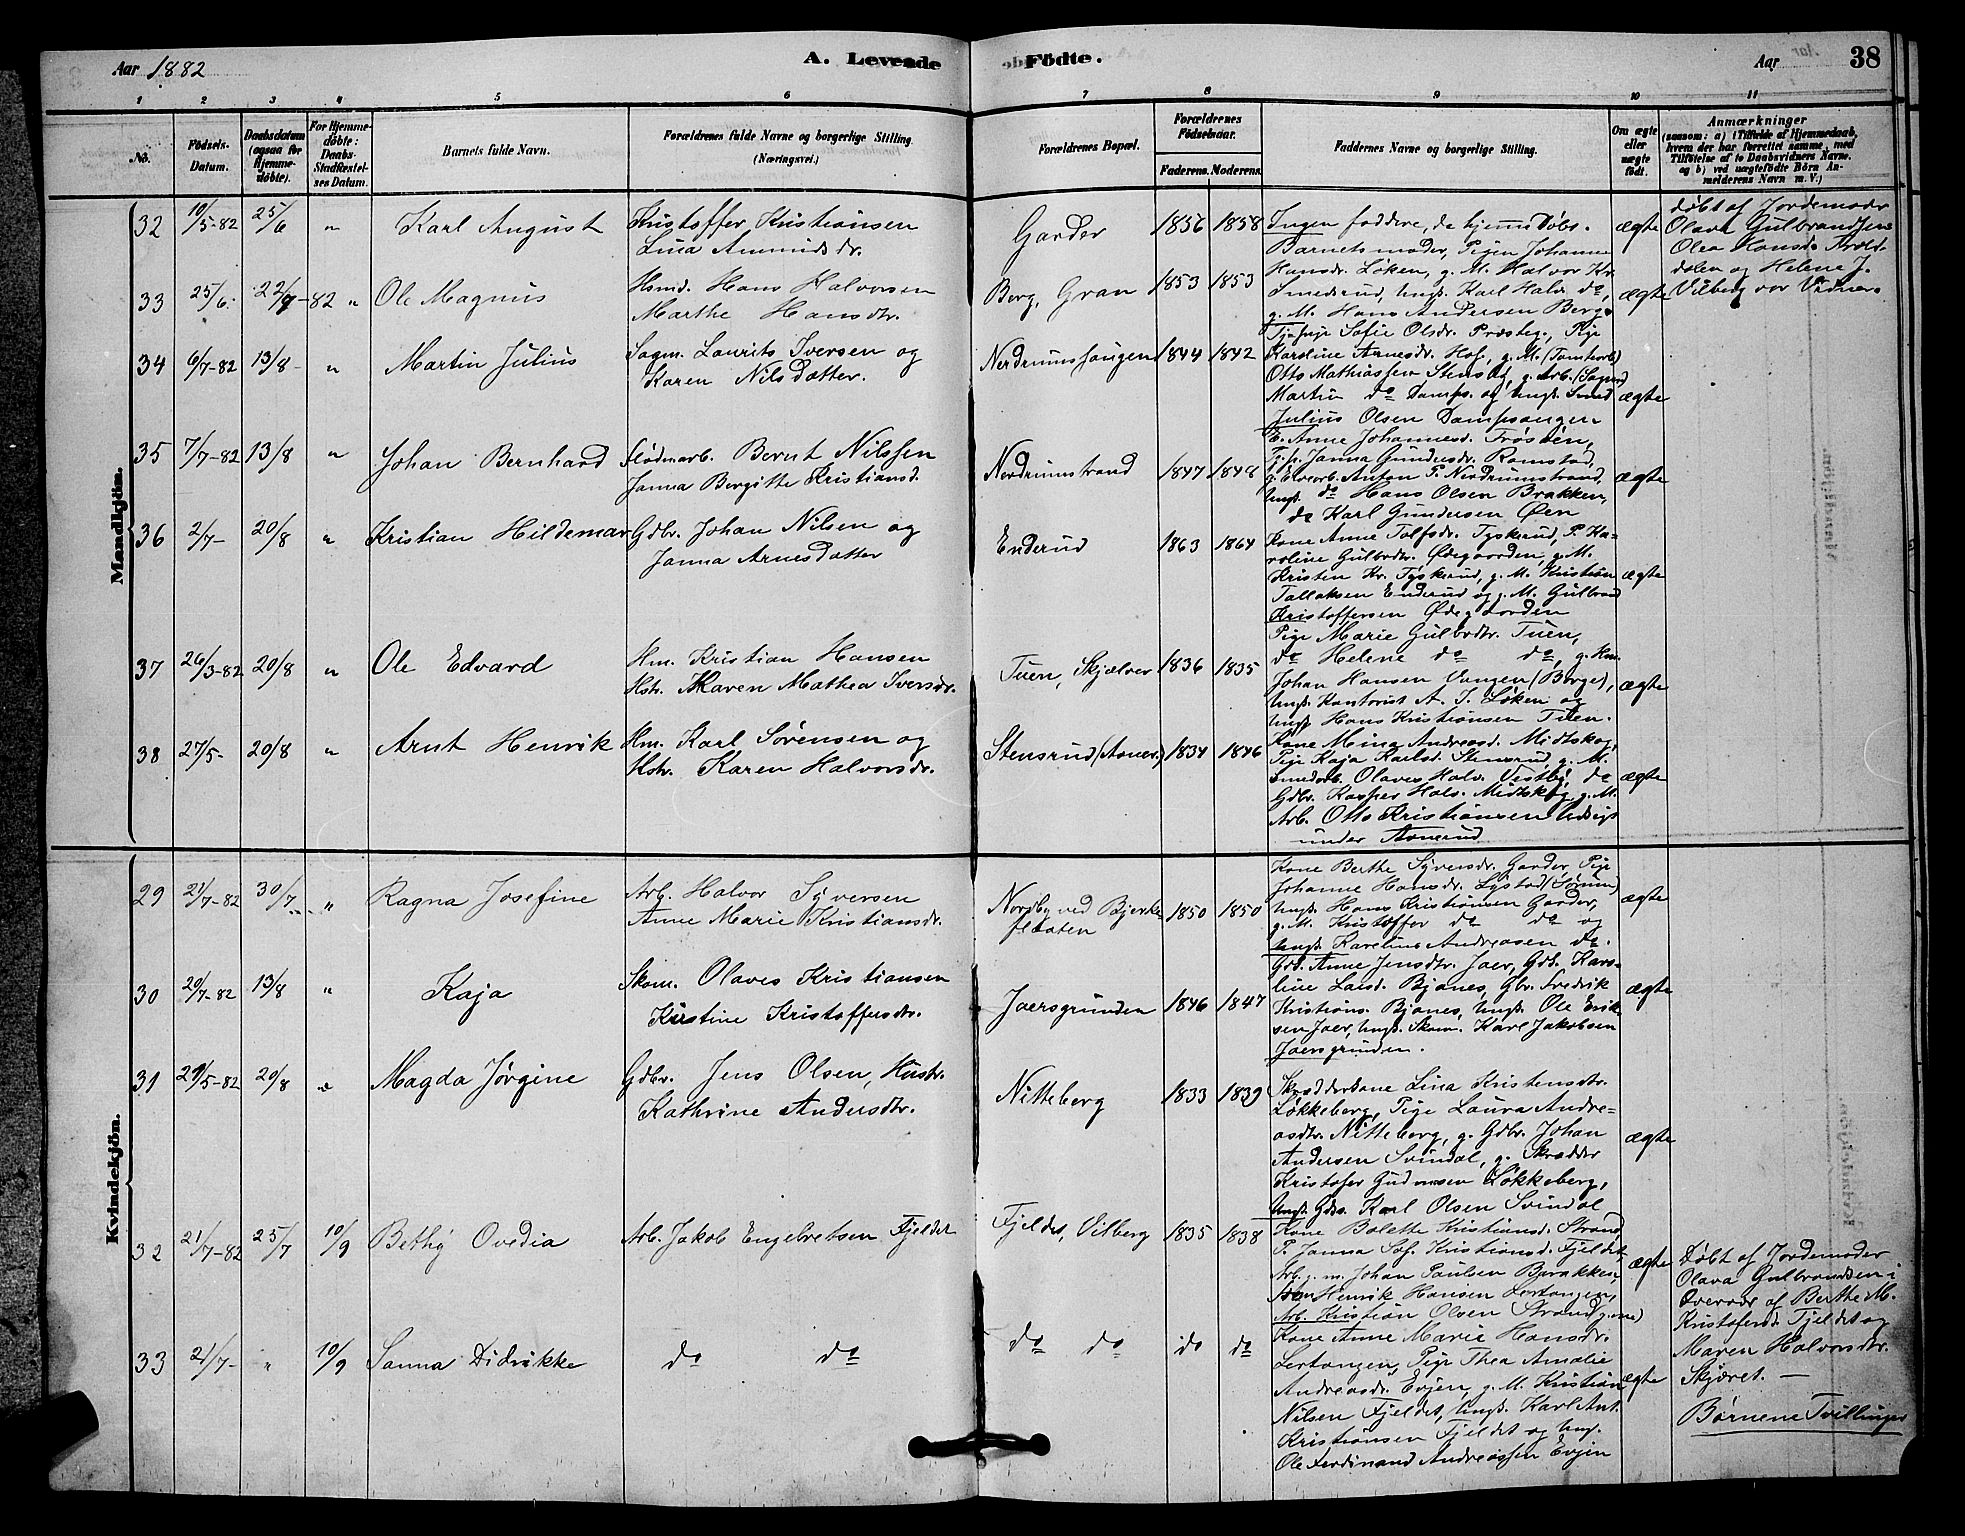 Aar 1882
A. Levende
Födte.
Aar
38
1 2 3 4 5 6 7 8 9 10 11
No.
Födsels-
Datum.
Daabsdatum
(ogsaa for
Hjemme-
döbte).
For Hjemme-
döbte:
Daabs-
Stadfæstel-
ses Datum.
Barnets fulde Navn.
Forældrenes fulde Navne og borgerlige Stilling.
(Næringsvei.)
Forældrenes Bopæl.
Forældrenes
Födselsaar.
Faderens. Moderens.
Faddernes Navne og borgerlige Stilling.
Om ægte
eller
uægte
födt.
Anmærkninger
(saasom: a) i Tilfælde af Hjemmedaab,
hvem der har forrettet samme, med
Tilföielse af to Daabsvidners Navne.
og b) ved uægtefödte Börn An-
melderens Navn m. V.)
Mandkjön.
32 10/5-82 25/6 " Karl August
Kristoffer Kristiansen
Lina Amundsdr.
Garder 1856 1858
Ingen faddere, da hjemmedöbt.
Barnets moder, Pigen Johanne
Hansdr. Løken, g. M. Halvor Kr.
ægte
Döbt af Jordemoder
Olava Gulbrandsen
Olea Hansd.
dalen og Helene J.
Vilberg var Vidner
33 25/6 22/7-82 " Ole Magnus
Hsmd. Hans Halvorsen
Marthe Hansdtr.
Berg, Gran 1853 1853
Smedsrud, Ungk. Karl Halv. do,
g. M. Hans Andersen Berg.
ægte
34 6/7-82 13/8- " Martin Julius
Sagm. Laurits Iversen og
Karen Nilsdatter.
Nerdrumssaugen 1844 1842
Tj. pige Sofie Olsdr. Præsteg., Pige
Karoline Arnesdr. Hof, g. M. (Tomtearb)
Otto Mathiassen Stensby, g. Arb.
Martin do Damps. og Ungk. Smed
Julius Olsen Dampsaugen
ægte
35 7/7-82 13/8 " Johan Bernhard
Flødmarb. Bernt Nilssen
Janna Bergitte Kristiansd.
Nerdrumstrand 1847 1848
E. Anne Johannesd. Trøstén,
Tj.p. Janna Gundersdr. Ramstad,
Anton P. Nerdrumstrand,
Ungk. do Hans Olsen Brakken,
do Karl Gundersen Øen
ægte
36 2/7- 20/8 " Kristian Hildemar
Gdbr. Johan Nilsen og
Janna Arnesdatter
Enderud 1863 1864
Kone Anne Tolfsdr. Tyskerud, P. Ka-
roline Gulbrdtr. Ødegaarden, g. M.
Kristen Kr. Tyskerud, g. M. Kristian
Tallaksen Enderud og g. M. Gulbrand
Kristoffersen Ødegaarden
ægte
37 26/3-82 20/8 " Ole Edvard
Hm. Kristian Hansen
Hstr. Maren Mathea Iversdr.
Tuen, Skjælver 1836 1835
Pige Marie Gulbrdtr. Tuen,
do Helene do do, g. Hm.
Johan Hansen Vangen (Berge),
Ungk. Kontorist A. J. Løken og
Ungk. Hans Kristiansen Tuen.
ægte
38 27/5- 20/8 " Arnt Henrik
Hm. Karl Sørensen og
Hstr. Karen Halvorsdr.
Stensrud (Asner.) 1834 1846
Kone Mina Andreasd. Midtskog,
Pige Kaja Karlsd. Stensrud, g. M.
Smedarb. Olaves Halv. Vestby, do
Gdbr. Kasper Halv. Midtskog, g. M.
Arb. Otto Kristiansen Udsigt
under Asnerud
ægte
Kvindekjön.
29 21/7-82 30/7 " Ragna Josefine
Arb. Halvor Syversen
Anne Marie Kristiansdr.
Nordby ved Bjerke
flaaten
1850 1850
Kone Berthe Syversdr. Garder, Pige
Johanne Hansdr. Lystad (Sørum)
Ungk. Hans Kristiansen Garder,
g. M. Kristoffer do do og
Ungk. Karelius Andreasen do.
ægte
30 20/7-82 13/8 " Kaja
Skom. Olaves Kristiansen
Kristine Kristoffersdtr.
Jaersgrunden 1846 1847
Gdk. Anne Jensdtr. Jaer, Gdk. Karo-
line Larsd. Bjanes, Gbr. Fredrik
Kristians. Bjanes, Ungk. Ole Erik-
sen Jaer, Ungk. Skom. Karl Jakobsen
Jaersgrunden.
ægte
31 29/5-82 20/8 " Magda Jørgine
Gdbr. Jens Olsen, Hustr.
Kathrine Andersdtr.
Nitteberg 1833 1839
Skrædderkone Lina Kristensdtr.
Løkkeberg, Pige Laura Andre-
asdtr. Nitteberg, g. Gdbr. Johan
Andersen Svindal, g. Skrædder
Kristofer Gudmsen Løkkeberg,
Ungk. Gdbs. Karl Olsen Svindal
ægte
32 21/7-82 25/7 10/9 Bethy Ovedia
Arb. Jakob Engebretsen Fjeldet
Fjeldet, Vilberg 1835 1838
Kone Bolette Kristiansd. Strand,
P. Janna Sof. Kristiansd. Fjeldet,
Arb. g. m. Johan Paulsen Brakken,
Henrik Hansen Lertangen,
Arb. Kristian Olsen Strand
ægte
Døbt af Jordemoder
Olava Gulbrandsen i
Overvær af Berthe M.
Kristofersd. Fjeldet og
Maren Halvorsdtr.
Skjæret. —
Børnene Tvillinger
33 21/7- " 10/9 Sanna Didrikke
do do
do do do do
Kone Anne Marie Hansdtr.
Lertangen, Pige Thea Amalie
Andreasdr. Evjen, g. M. Kristian
Nilsen Fjeldet, Ungk. Karl Ant.
Kristiansen Fjeldet og Ung.
Ole Ferdinand Andreassen Evjen
ægte